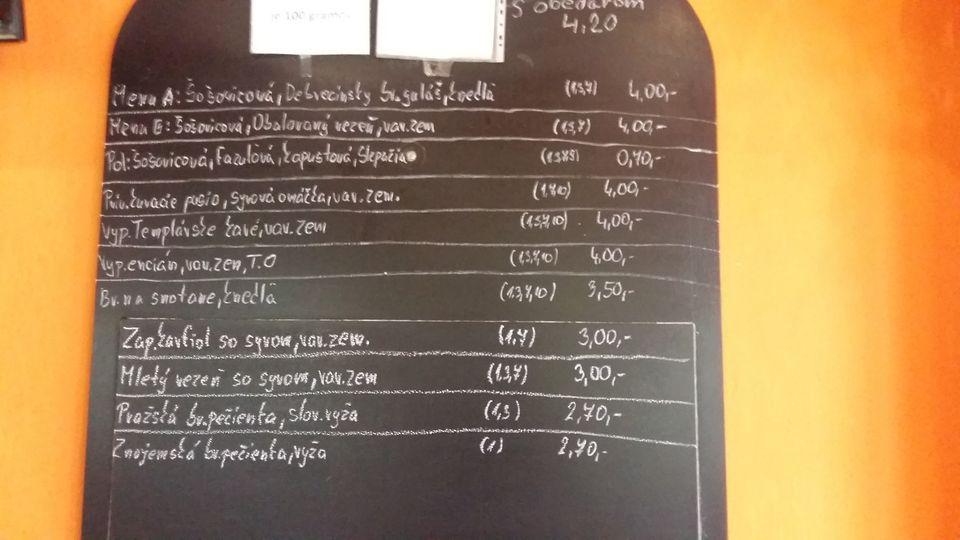 je 100 gramov
s obedárom
4,20
Menu A: Šošovicová, Debrecínsky br.guláš, knedľa (1,3,7) 4,00,-
Menu B: Šošovicová, Obaľovaný rezeň, var.zem (1,3,7) 4,00,-
Pol: Šošovicová, Fazuľová, kapustová, Slepačia 0,70,-
syrová omáčka, var.zem. (1,7,10) 4,00,-
Vyp. Templárske kavé, var.zem (1,3,7,10) 4,00,-
Vyp.encián, var.zem, T.O (1,3,7,10) 4,00,-
Br. na smotane, knedľa (1,3,7,10) 3,50,-
Zap.karfiol so syrom, var.zem. (1,7) 3,00,-
Mletý rezeň so syrom, var.zem (1,3,7) 3,00,-
Pražská br.pečienka, slov.ryža (1,3) 2,70,-
Znojemská br.pečienka, ryža (1) 2,70,-